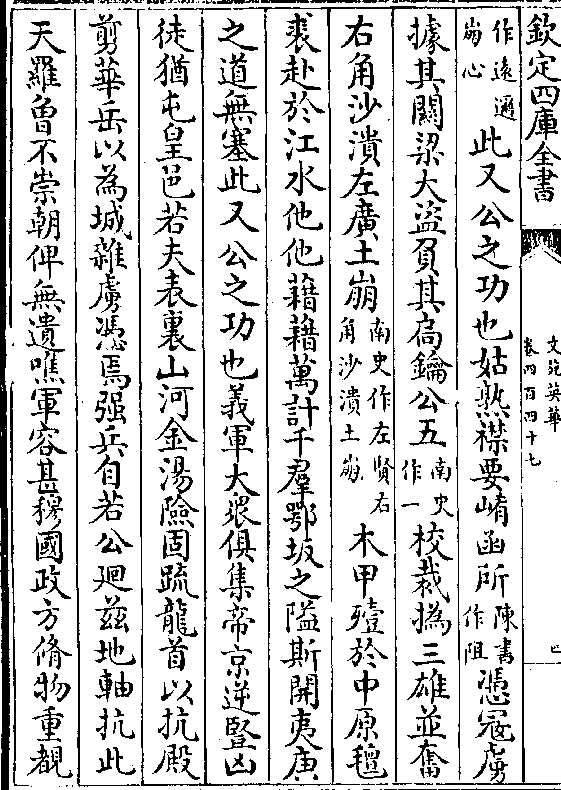 欽定四庫全書
文苑英華
卷四百四十七
作遠邇崩心此又公之功也姑熟襟要崤函所陳書作阻憑寇虜
據其關梁大盜負其扃鑰公五南史作一校裁撝三雄並奮
右角沙潰左廣土崩南史作左賢右角沙潰土崩木甲殪於中原氊
裘赴於江水他他藉藉萬計千羣鄂坂之隘斯開夷庚
之道無塞此又公之功也義軍大衆俱集帝京逆豎凶
徒猶屯皇邑若夫表裏山河金湯險固疏龍首以抗殿
剪華岳以為城雜虜憑焉强兵自若公廻兹地軸抗此
天羅曾不崇朝俾無遺噍軍容甚穆國政方脩物重覩